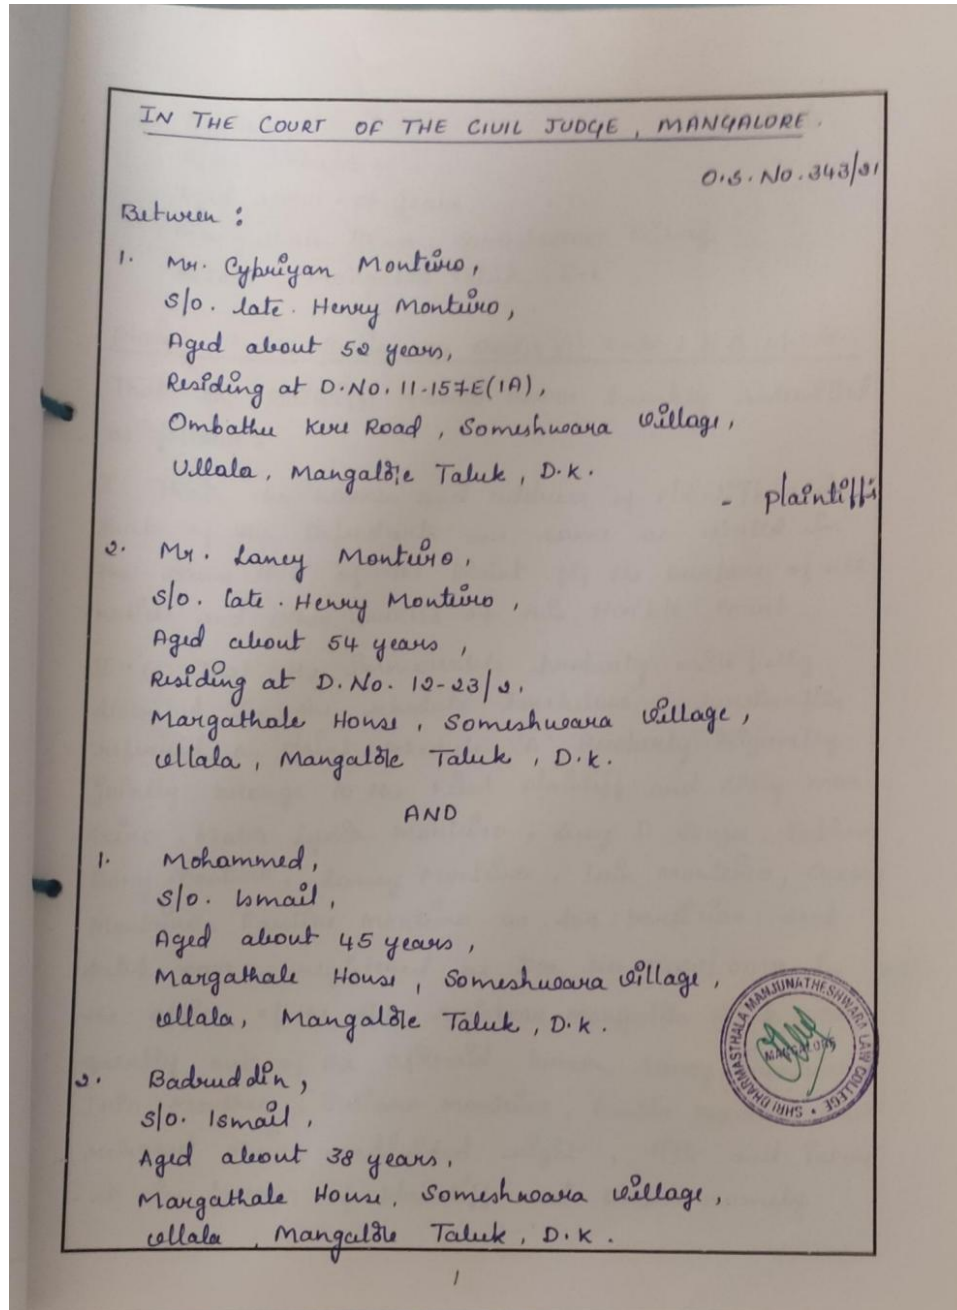 IN THE COURT OF THE CIVIL JUDGE, MANGALORE.
O.S. No. 343/21
Between :
1. Mr. Cypriyan Monteiro,
S/o. late. Henry Monteiro,
Aged about 52 years,
Residing at D.No. 11-157E(1A),
Ombathu Kere Road, Someshwara Village,
Ullala, Mangalore Taluk, D.K.
- Plaintiffs
2. Mr. Lancy Monteiro,
S/o. late. Henry Monteiro,
Aged about 54 years,
Residing at D.No. 12-23/2,
Margathale House, Someshwara Village,
Ullala, Mangalore Taluk, D.K.
AND
1. Mohammed,
S/o. Ismail,
Aged about 45 years,
Margathale House, Someshwara Village,
Ullala, Mangalore Taluk, D.K.
2. Badruddin,
S/o. Ismail,
Aged about 38 years,
Margathale House, Someshwara Village,
Ullala, Mangalore Taluk, D.K.
SHRI DHARMASTHALA MANJUNATHESHWARA LAW COLLEGE
MANGALORE
1